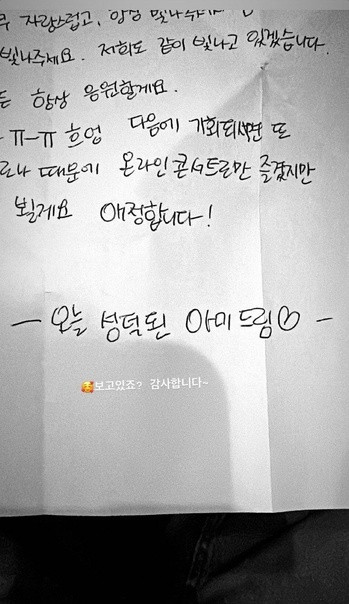 자랑스럽고, 항상 빛나주셔서
빛나주세요. 저희도 같이 빛나고 있겠습니다.
항상 응원할게요.
ㅠ-ㅠ 흐엉 다음에 기회되시면 또
로나 때문에 온라인 콘서트로만 즐겼지만
뵐게요 애정합니다!
— 오늘 성덕된 아미 드림♡ —
🥰보고있죠? 감사합니다~